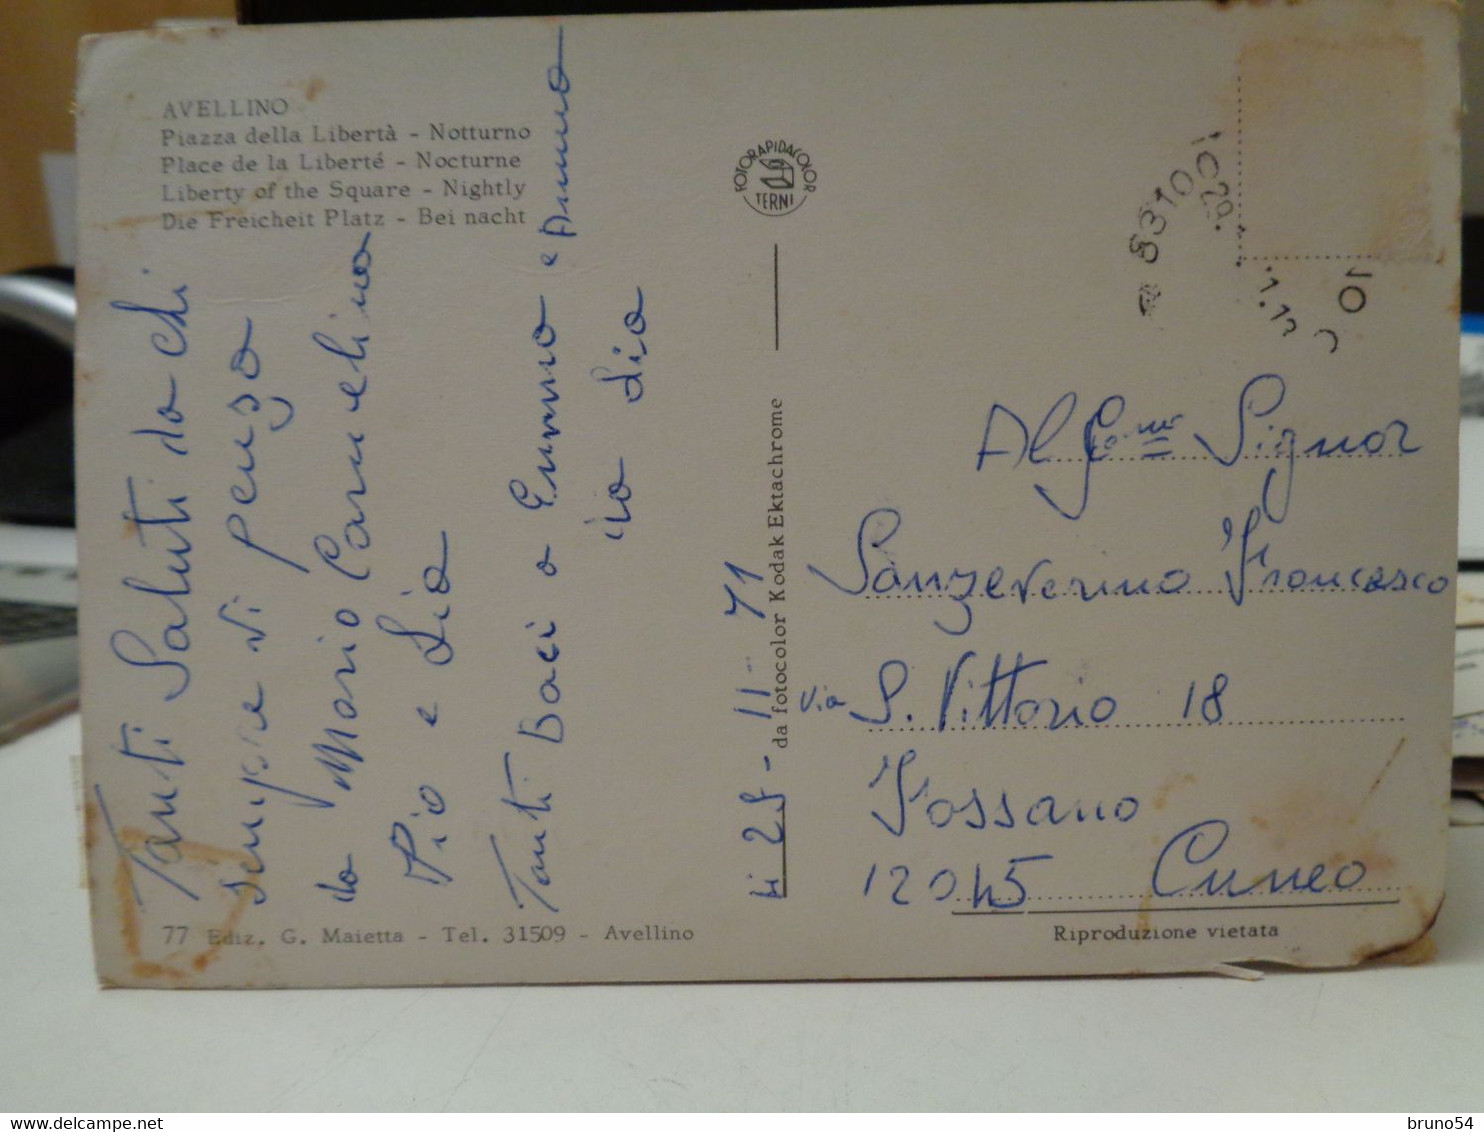 AVELLINO
Piazza della Libertà - Notturno
Place de la Liberté - Nocturne
Liberty of the Square - Nightly
Die Freicheit Platz - Bei nacht
Tanti Saluti da chi
sempre vi penza
da Mario Carmelina
Pio e Lia
Tanti Baci a Emma e Anna
zia Lia
FOTORAPIDACOLOR
TERNI
da fotocolor Kodak Ektachrome
li 25-11-71
83100
10
Al Signor
Sanzeverino Francesco
Via S. Vittorio 18
Fossano
12045 Cuneo
77 Ediz. G. Maietta - Tel. 31509 - Avellino
Riproduzione vietata
bruno54